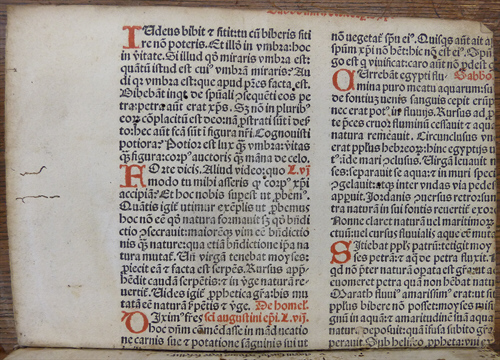 IUdeus bibit ⁊ sitit: tu cũ biberis siti
re nõ poteris. Et illð in vmbra: hoc
in ṽitate. Si illud qð miraris vmbra est:
quãtũ istud est cuiꝰ vmbrã miraris? Au
di qꝛ vmbra est: que apud pr̃es facta est.
Bibebãt inqt de spũali ↄsequẽti eos pe
tra: petra aũt erat xp̃s. Sꝫ nõ in plurib⁹
eoꝝ cõplacitũ est deo: nã ꝓstrati sũt i des
to: hec aũt fcã sũt i figura nr̃i. Cognouisti
potiora? Potior est lux qꝫ vmbra: ṽitas
qꝫ figura: corp⁹ auctoris qꝫ mãna de celo.
FOrte dicis. Aliud video: quo L. vj
modo tu mihi asseris qꝛ corp⁹ xp̃i
accipiã? Et hoc nobis supest vt ꝓbem⁹.
Quãtis igit̃ vtimur exẽplis vt ꝓbemus
hoc nõ eẽ qð natura formauit sꝫ qð bñdi
ctio ↄsecrauit: maioreqꝫ vim eẽ bñdictio
nis qꝫ nature: qua etiã bñdictione ip̃a na
tura mutat̃. Vn̄ virgã tenebat moyses:
ꝓiecit eã ⁊ facta est serpẽs. Rursus app̃
hẽdit caudã serpẽtis: ⁊ in ṽge naturã re
uertit̃. Vides igit̃ ꝓphetica gr̃a: bis mu
tatã eẽ naturã serpẽtis ⁊ ṽge. De homel.
DIxim⁹ fres̃ sci augustini epi. L. vij.
hoc dñm cõmẽdasse in mãducatio
ne carnis sue ⁊ potatione sãguinis sui vt
nõ vegetat̃ spũ ei⁹. Quisqꝫ aũt ait
spũm xp̃i nõ hẽt: hic nõ est ei⁹. Sp
go est q viuificat: caro aũt nõ ꝓdest
CUrrebãt egypti flu- Sabbo
mina puro meatu aquarum: su
de fontiũ venis sanguis cepit erũp
nec erat pot⁹ in fluuijs. Rursus ad ꝓ
te p̃ces cruor fluminũ cessauit ⁊ aqua
natura remeauit. Circũclusus vn
erat pp̃ls hebreor: hinc egyptijs
t⁹: ĩde mari ↄclusus. Virgã leuauit m
es: separauit se aqua: ⁊ in muri speci
ↄgelauit: atqꝫ inter vndas via pedes
apparuit. Jordanis ↄuersus retrorsum
tra naturã in sui fontis reuertit̃ exor
Nonne claret naturã vel maritimorũ
ctuũ vel cursus fluuialis aque eẽ muta
SItiebat pp̃ls patrũ: tetigit moy
ses petrã: ⁊ aqꝛ de petra fluxit.
qd nõ p̃ter naturã opata est gr̃a: vt
moueret petra quã non hẽbat natura
Marath fluui⁹ amarissim⁹ erat: vt
pp̃lus bibere nõ posset: moyses misit
gnũ in aquã: ⁊ amaritudinẽ suã aqua
natura deposuit: quã ifusa subito gr̃a
perauit. Sub helisco ꝓpheta: vni ex